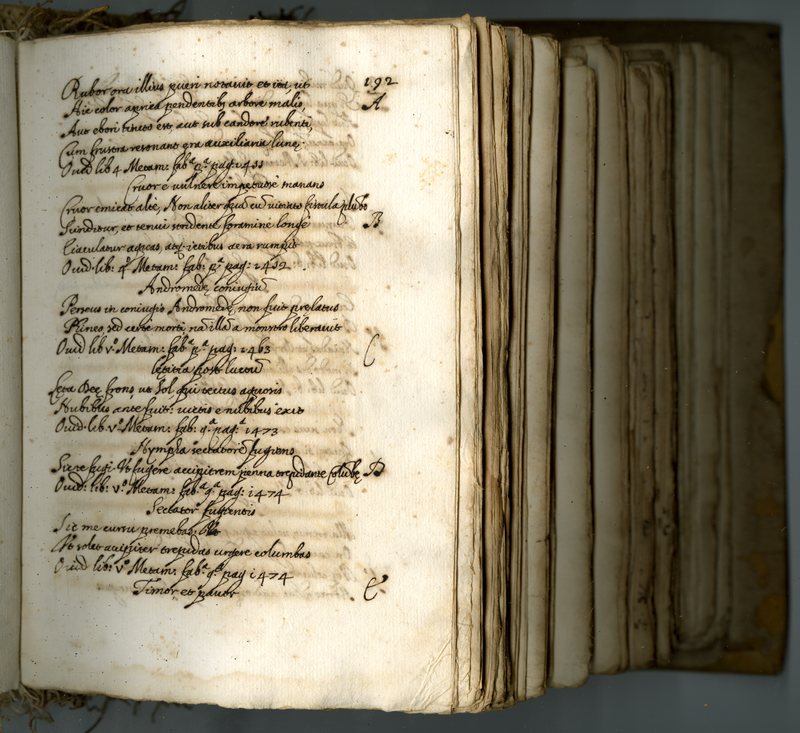 192
Rubor ora illius pueri notavit et ità, ut
A
Hic color aprica pendentibꝫ arbore malis,
Aut ebori tincto est aut sub candore rubenti,
Cum frustra resonant ęra auxiliaria lunę.
Ovid lib 4 Metam: fabª pª pag: 1431
Cruor e vulnere impetuose manans
Cruor emicat alte, Non aliter quã cũ vitiato fistula plũbo
B
Scinditur, et tenui stridente foramine longè
Eiaculatur aquas, atqꝫ ictibus aera rumpit
Ovid. lib: 4º Metam: fab: pª pag: 1432
Andromedę coniugiũ
Perseus in coniugio Andromedę, non fuit prelatus
Phineo, sed certe morti, nã illã a monstro liberavit
Ovid lib vº Metam: fabª pª pag: 1463
C
lętitia post luctũ
lęta Deę frons, ut Sol qui tectus aquosis
Nubibus ante fuit: victis e nubibus exit
Ovid. lib. vº Metam: fab: 4ª pag: 1473
Nympha sectatorẽ fugiens
Sic ego fugi. Ut fugere accipitrem penna trepidante colũbę
D
Ovid: lib: vº Metam: fabª 4ª pag: 1474
Sectator fugientis
Sic me cursu premebas.
Ut solet accipiter trepidas urgere columbas
Ovid lib: vº Metam: fabª 4ª pag 1474
Timor et pavor
E